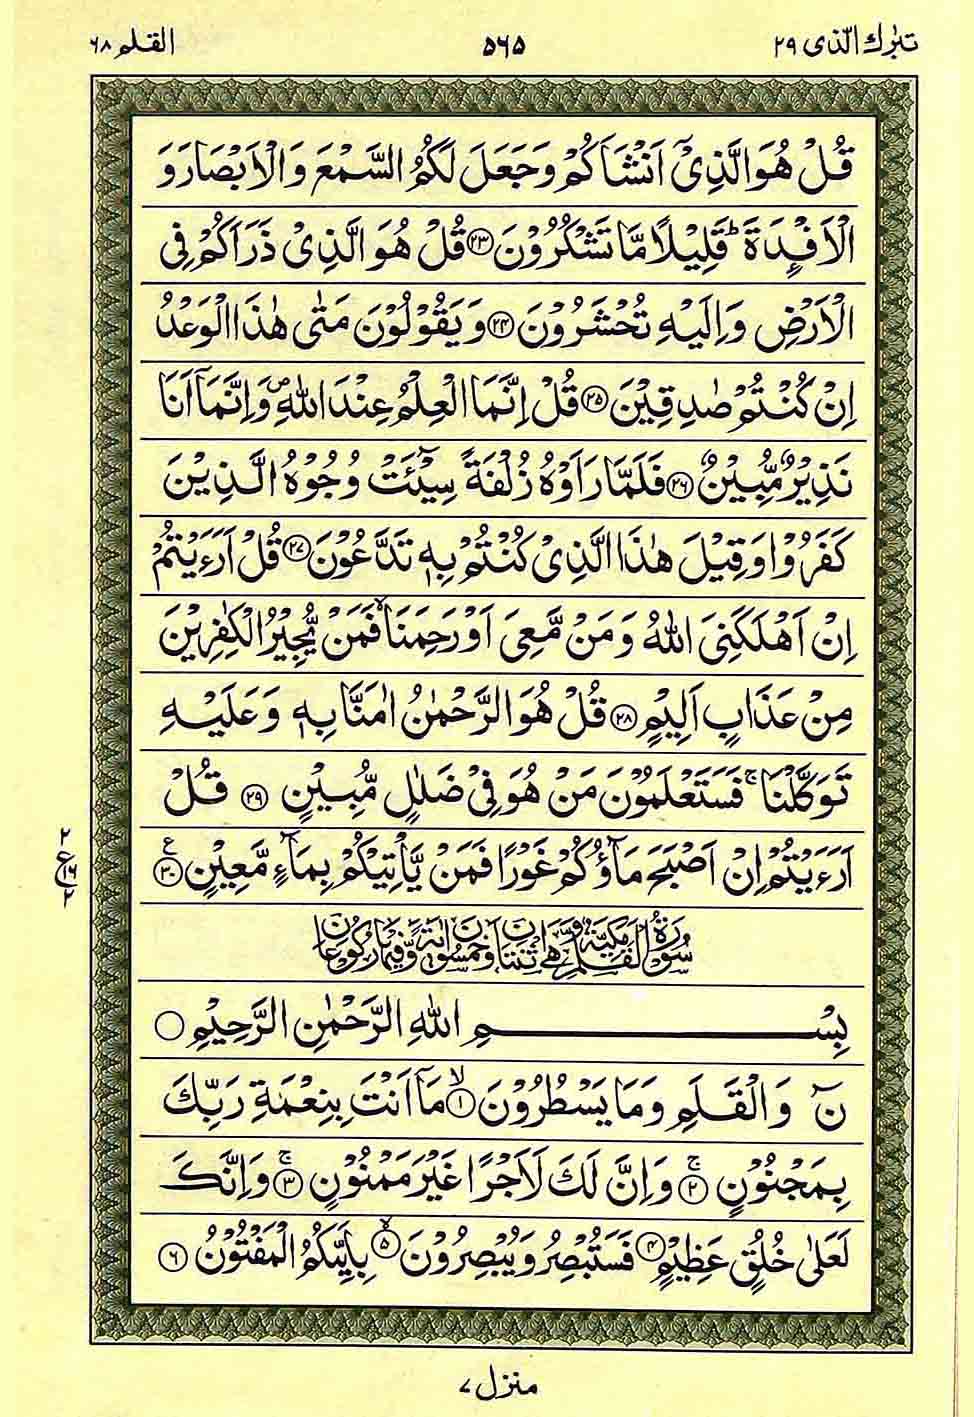 تبٰرك الّذی ۲۹
۵۶۵
القلم ۶۸
قُلْ هُوَ الَّذِیْۤ اَنْشَاَكُمْ وَ جَعَلَ لَكُمُ السَّمْعَ وَ الْاَبْصَارَ وَ
الْاَفْـِٕدَةَ ؕ قَلِیْلًا مَّا تَشْكُرُوْنَ ۲۳ قُلْ هُوَ الَّذِیْ ذَرَاَكُمْ فِی
الْاَرْضِ وَ اِلَیْهِ تُحْشَرُوْنَ ۲۴ وَ یَقُوْلُوْنَ مَتٰی هٰذَا الْوَعْدُ
اِنْ كُنْتُمْ صٰدِقِیْنَ ۲۵ قُلْ اِنَّمَا الْعِلْمُ عِنْدَ اللّٰهِ ۪ وَ اِنَّمَاۤ اَنَا
نَذِیْرٌ مُّبِیْنٌ ۲۶ فَلَمَّا رَاَوْهُ زُلْفَةً سِیْٓـَٔتْ وُجُوْهُ الَّذِیْنَ
كَفَرُوْا وَ قِیْلَ هٰذَا الَّذِیْ كُنْتُمْ بِهٖ تَدَّعُوْنَ ۲۷ قُلْ اَرَءَیْتُمْ
اِنْ اَهْلَكَنِیَ اللّٰهُ وَ مَنْ مَّعِیَ اَوْ رَحِمَنَا ۙ فَمَنْ یُّجِیْرُ الْكٰفِرِیْنَ
مِنْ عَذَابٍ اَلِیْمٍ ۲۸ قُلْ هُوَ الرَّحْمٰنُ اٰمَنَّا بِهٖ وَ عَلَیْهِ
تَوَكَّلْنَا ۚ فَسَتَعْلَمُوْنَ مَنْ هُوَ فِیْ ضَلٰلٍ مُّبِیْنٍ ۲۹ قُلْ
اَرَءَیْتُمْ اِنْ اَصْبَحَ مَآؤُكُمْ غَوْرًا فَمَنْ یَّاْتِیْكُمْ بِمَآءٍ مَّعِیْنٍ ۳۰ ع
۲
ع ۱۶
۲
سُوْرَةُ الْقَلَمِ مَكِّیَّةٌ وَّهِیَ اثْنَتَانِ وَخَمْسُوْنَ اٰیَةً وَّفِیْهَا رُكُوْعَانِ
بِسْمِ اللّٰهِ الرَّحْمٰنِ الرَّحِیْمِ
نٓ وَ الْقَلَمِ وَ مَا یَسْطُرُوْنَ ۙ ۱ مَاۤ اَنْتَ بِنِعْمَةِ رَبِّكَ
بِمَجْنُوْنٍ ۚ ۲ وَ اِنَّ لَكَ لَاَجْرًا غَیْرَ مَمْنُوْنٍ ۚ ۳ وَ اِنَّكَ
لَعَلٰی خُلُقٍ عَظِیْمٍ ۴ فَسَتُبْصِرُ وَ یُبْصِرُوْنَ ۙ ۵ بِاَىیِّكُمُ الْمَفْتُوْنُ ۶
منزل ۷